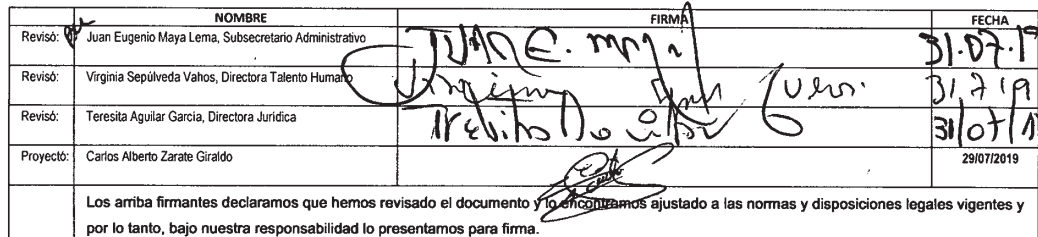 NOMBRE FIRMA FECHA
Revisó: Juan Eugenio Maya Lema, Subsecretario Administrativo JUAN E. 31.07.19
Revisó: Virginia Sepúlveda Vahos, Directora Talento Humano Virginia 31.7.19
Revisó: Teresita Aguilar Garcia, Directora Juridica 31/07/1
Proyectó: Carlos Alberto Zarate Giraldo 29/07/2019
Los arriba firmantes declaramos que hemos revisado el documento y lo encontramos ajustado a las normas y disposiciones legales vigentes y
por lo tanto, bajo nuestra responsabilidad lo presentamos para firma.